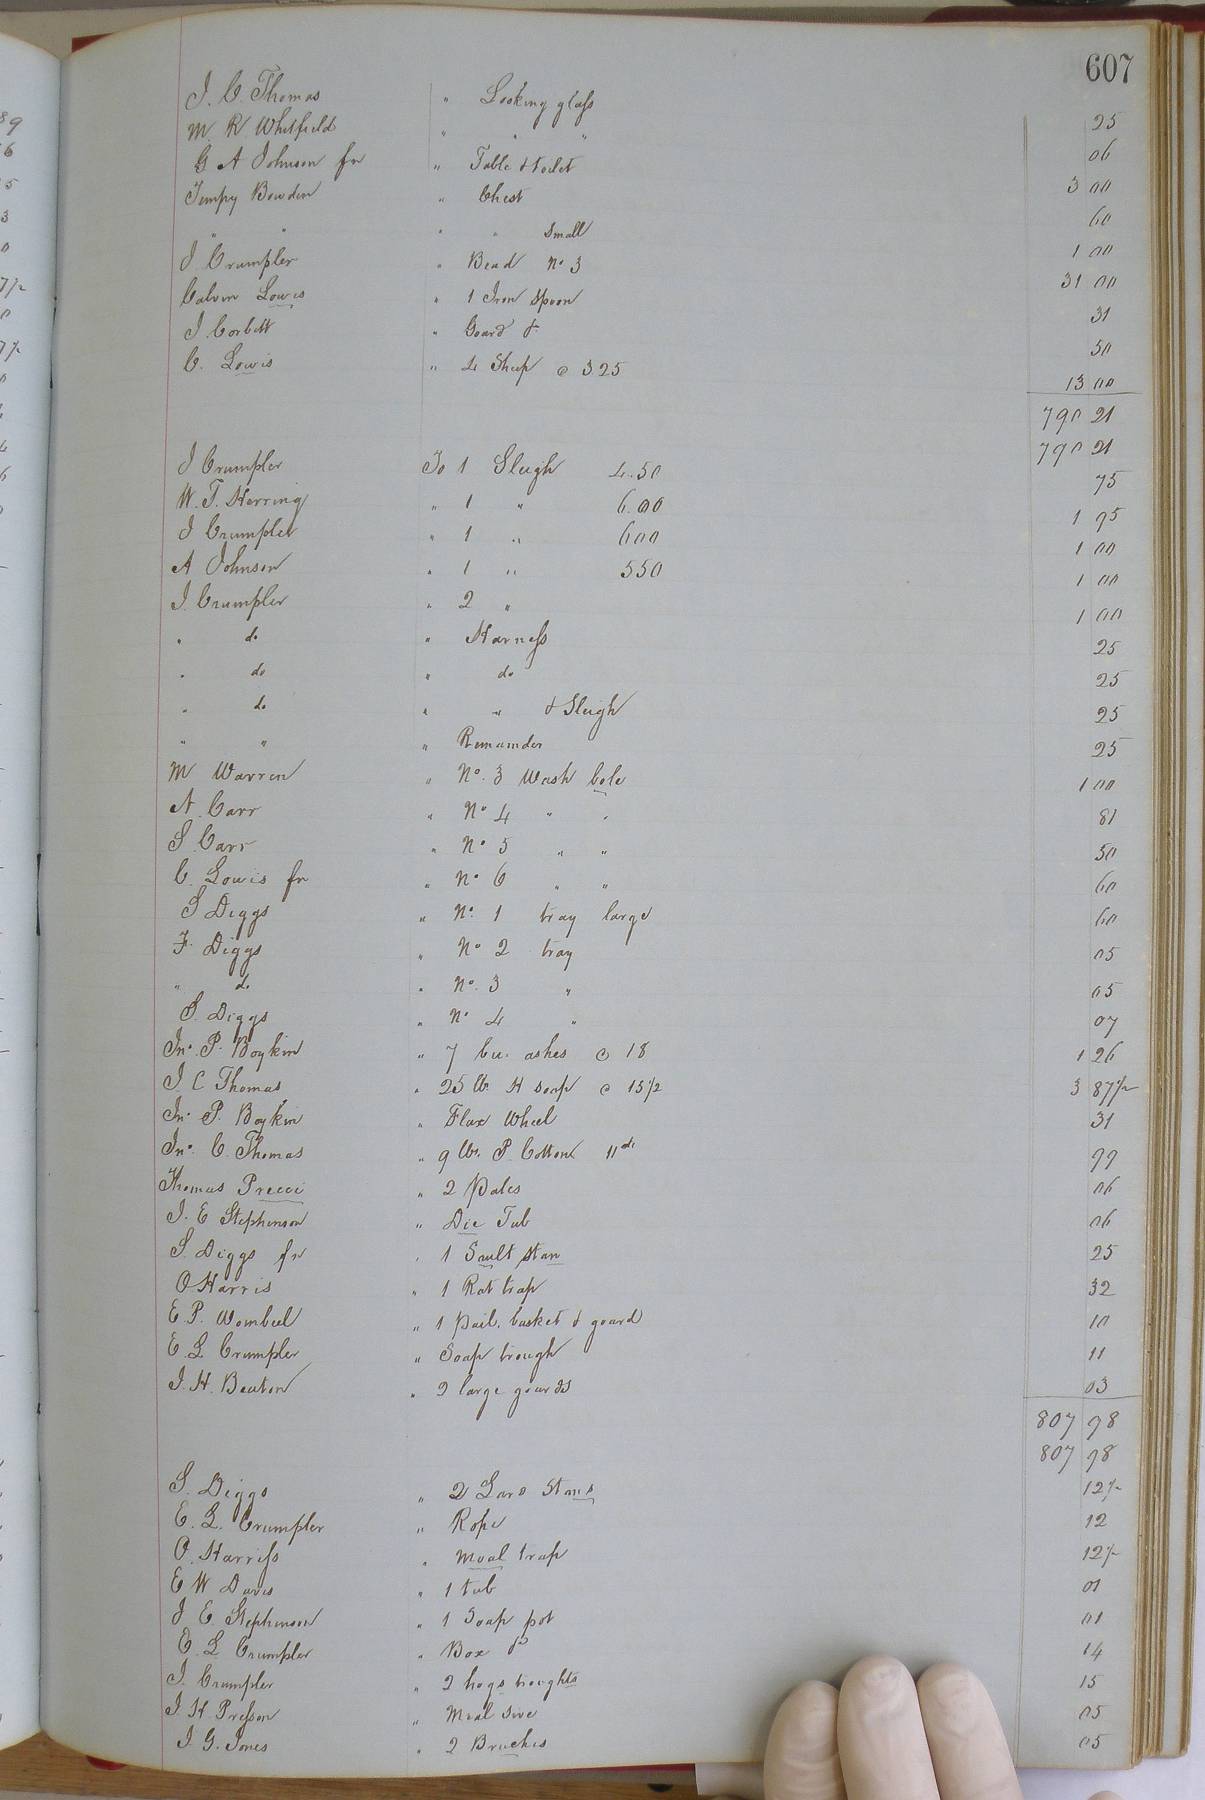 607
J. C. Thomas " Looking glass 25
M. R Whitfield " " " 06
G A Johnson for " Table & toilet 3 00
Tempy Bowden " Chest 60
" " " " Small 1 00
J Crumpler " Bead No 3 31 00
Calvin Lowis " 1 Iron Spoon 31
J. Corbitt " Goard & 50
C. Lowis " 4 Sheep @ 3 25 13 00
790 21
790 21
J Crumpler To 1 Sleigh 4.50 75
W. T. Herring " 1 " 6.00 1 95
J Crumpler " 1 " 600 1 00
A Johnson " 1 " 550 1 00
J. Crumpler " 2 " 1 00
" do " Harness 25
" do " do 25
" do " " & Sleigh 25
" " " Remainder 25
M Warren " No. 3 Wash bole 1 00
A. Carr " No 4 " " 81
S. Carr " No 5 " " 50
C. Lowis for " No 6 " " 60
S Diggs " No. 1 tray large 60
F. Diggs " No 2 tray 05
" do " No. 3 " 05
S. Diggs " No 4 " 07
Jno. P. Boykin " 7 bu. ashes @ 18 1 26
J. C Thomas " 25 lb H soap @ 15 1/2 3 87 1/2
Jno. P. Boykin " Flax Wheel 31
Jno. C. Thomas " 9 lbs. P. Cotton 11 cts 99
Thomas Precci " 2 Pales 06
J. E Stephenson " Die Tub 06
S. Diggs for " 1 Sault stan 25
O Harris " 1 Rat trap 32
E. P. Wombeel " 1 Pail. basket & goard 10
E. L Crumpler " Soap trough 11
J. H. Beaton " 2 large gourds 03
807 98
807 98
S. Diggs " 2 Lard Stans 12 1/2
E. L. Crumpler " Rope 12
O. Harriss " Moal trap 12 1/2
E W Davis " 1 tub 01
J E. Stephenson " 1 Soap pot 01
E. L Crumpler " Box & 14
J. Crumpler " 2 hogs troughts 15
J. H Presson " Meal Sive 05
J. G. Jones " 2 Bruchis 05